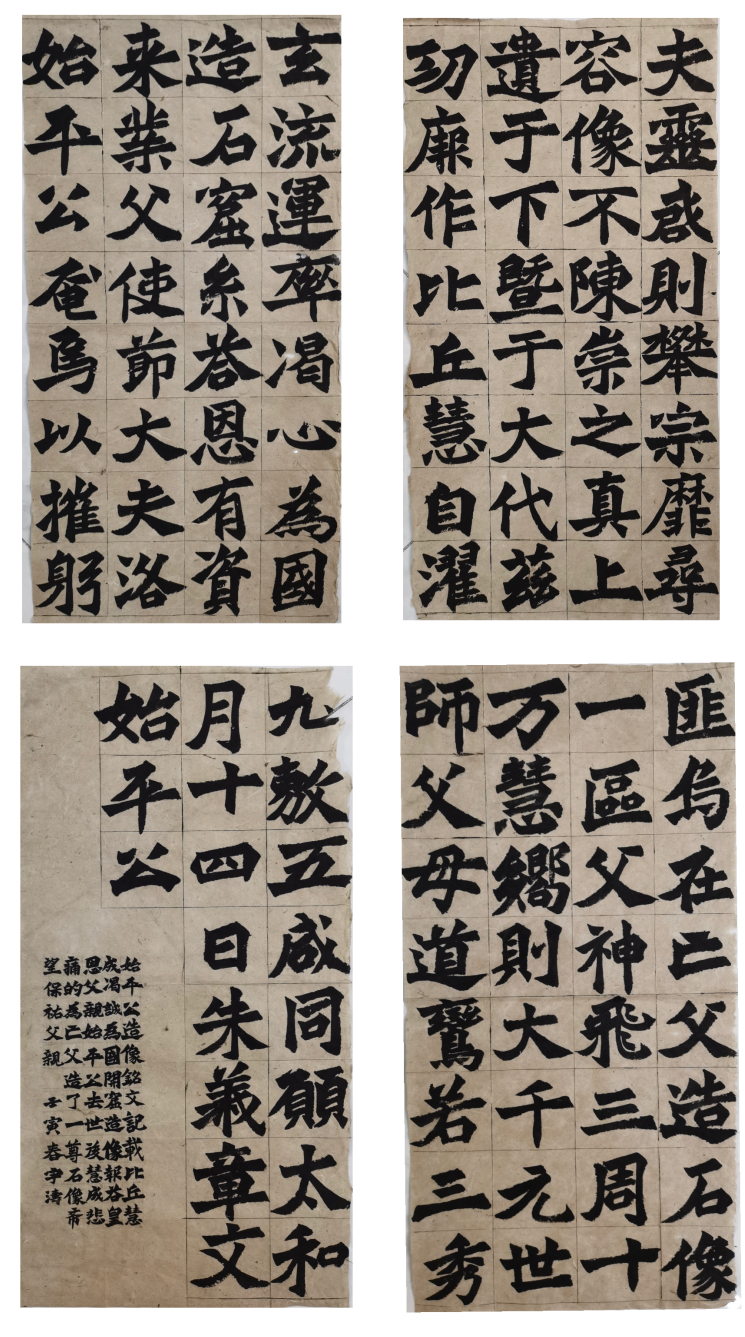 夫靈啟則攀宗靡尋
容像不陳崇之真上
遺于下暨于大代茲
功廓作比丘慧自濯
玄流運率渴心為國
造石窟糸荅恩有資
来業父使節大夫洛
始平公奄焉以摧躬
匪烏在亡父造石像
一區父神飛三周十
万慧嚮則大千元世
師父母道鸞若三秀
九敷五咸同願太和
月十四日朱義章文
始平公
始平公造像銘文記載比丘慧
成渴誠為國開窟造像報荅皇
恩父親始平公去世後慧成悲
痛的為亡父造了一尊石像希
望保祐父親 壬寅春宇涛